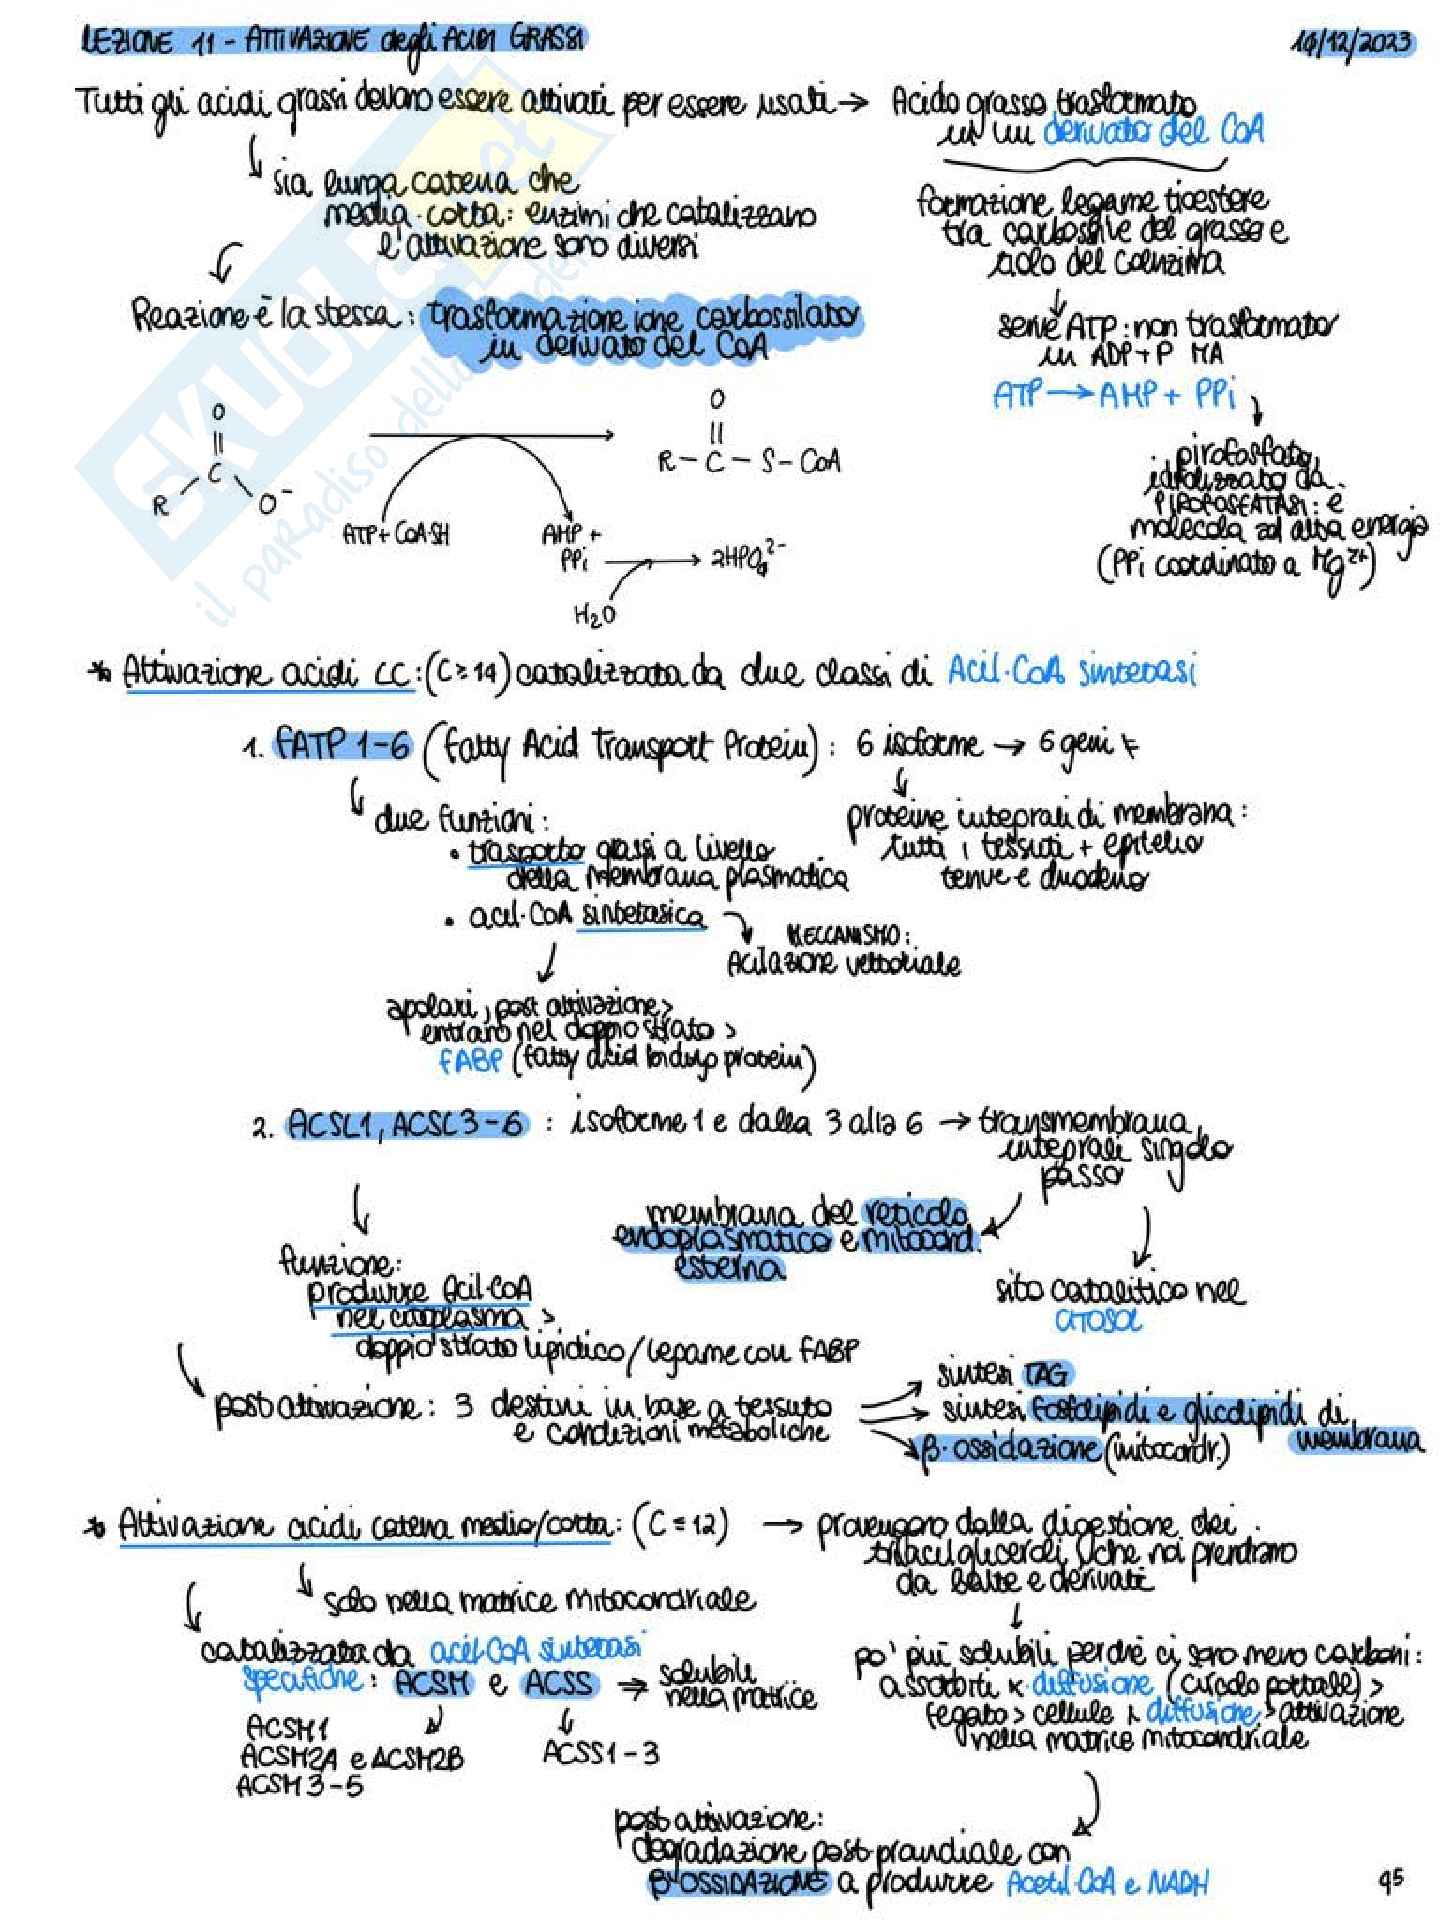 LEZIONE 11 - ATTIVAZIONE degli ACIDI GRASSI
14/12/2023
Tutti gli acidi grassi devono essere attivati per essere usati → Acido grasso trasformato
in un derivato del CoA
↳ sia lunga catena che
media-corta: enzimi che catalizzano
l'attivazione sono diversi
formazione legame tioestere
tra carbossile del grasso e
tiolo del coenzima
Reazione è la stessa: trasformazione ione carbossilato
in derivato del CoA
serve ATP: non trasformato
in ADP+P MA
ATP → AMP + PPi
pirofosfato,
idrolizzato da
PIROFOSFATASI: è
molecola ad alta energia
(PPi coordinato a Mg²⁺)
O
||
R - C - O⁻
ATP+ CoA-SH
AMP +
PPi → 2HPO₄²⁻
H₂O
O
||
R - C - S - CoA
* Attivazione acidi LC: (C≥14) catalizzata da due classi di Acil-CoA sintetasi
1. FATP 1-6 (Fatty Acid Transport Protein): 6 isoforme → 6 geni ≠
↳ due funzioni:
• trasporto grassi a livello
della membrana plasmatica
• acil-CoA sintetasica
proteine integrali di membrana:
tutti i tessuti + epitelio
tenue e duodeno
MECCANISMO:
Acilazione vettoriale
apolari, post attivazione>
entrano nel doppio strato >
FABP (fatty acid binding protein)
2. ACSL1, ACSL3-6 : isoforme 1 e dalla 3 alla 6 → transmembrana
integrali singolo
passo
membrana del reticolo
endoplasmatico e mitocond.
esterna
sito catalitico nel
CITOSOL
funzione:
produrre Acil-CoA
nel citoplasma >
doppio strato lipidico/legame con FABP
post attivazione: 3 destini in base a tessuto
e condizioni metaboliche
→ sintesi TAG
→ sintesi fosfolipidi e glicolipidi di
membrana
→ β-ossidazione (mitocondr.)
* Attivazione acidi catena media/corta: (C≤12) → provengono dalla digestione dei
triacilgliceroli che noi prendiamo
da latte e derivati
↳ solo nella matrice mitocondriale
catalizzata da acil-CoA sintetasi
specifiche: ACSM e ACSS → solubili
nella matrice
ACSM1
ACSM2A e ACSM2B
ACSM3-5
ACSS1-3
po' più solubili perché ci sono meno carboni:
assorbiti x diffusione (circolo portale) >
fegato > cellule x diffusione > attivazione
nella matrice mitocondriale
post attivazione:
degradazione post-prandiale con
β-OSSIDAZIONE a produrre Acetil-CoA e NADH
45
SKUOLA.net
il paradiso dello